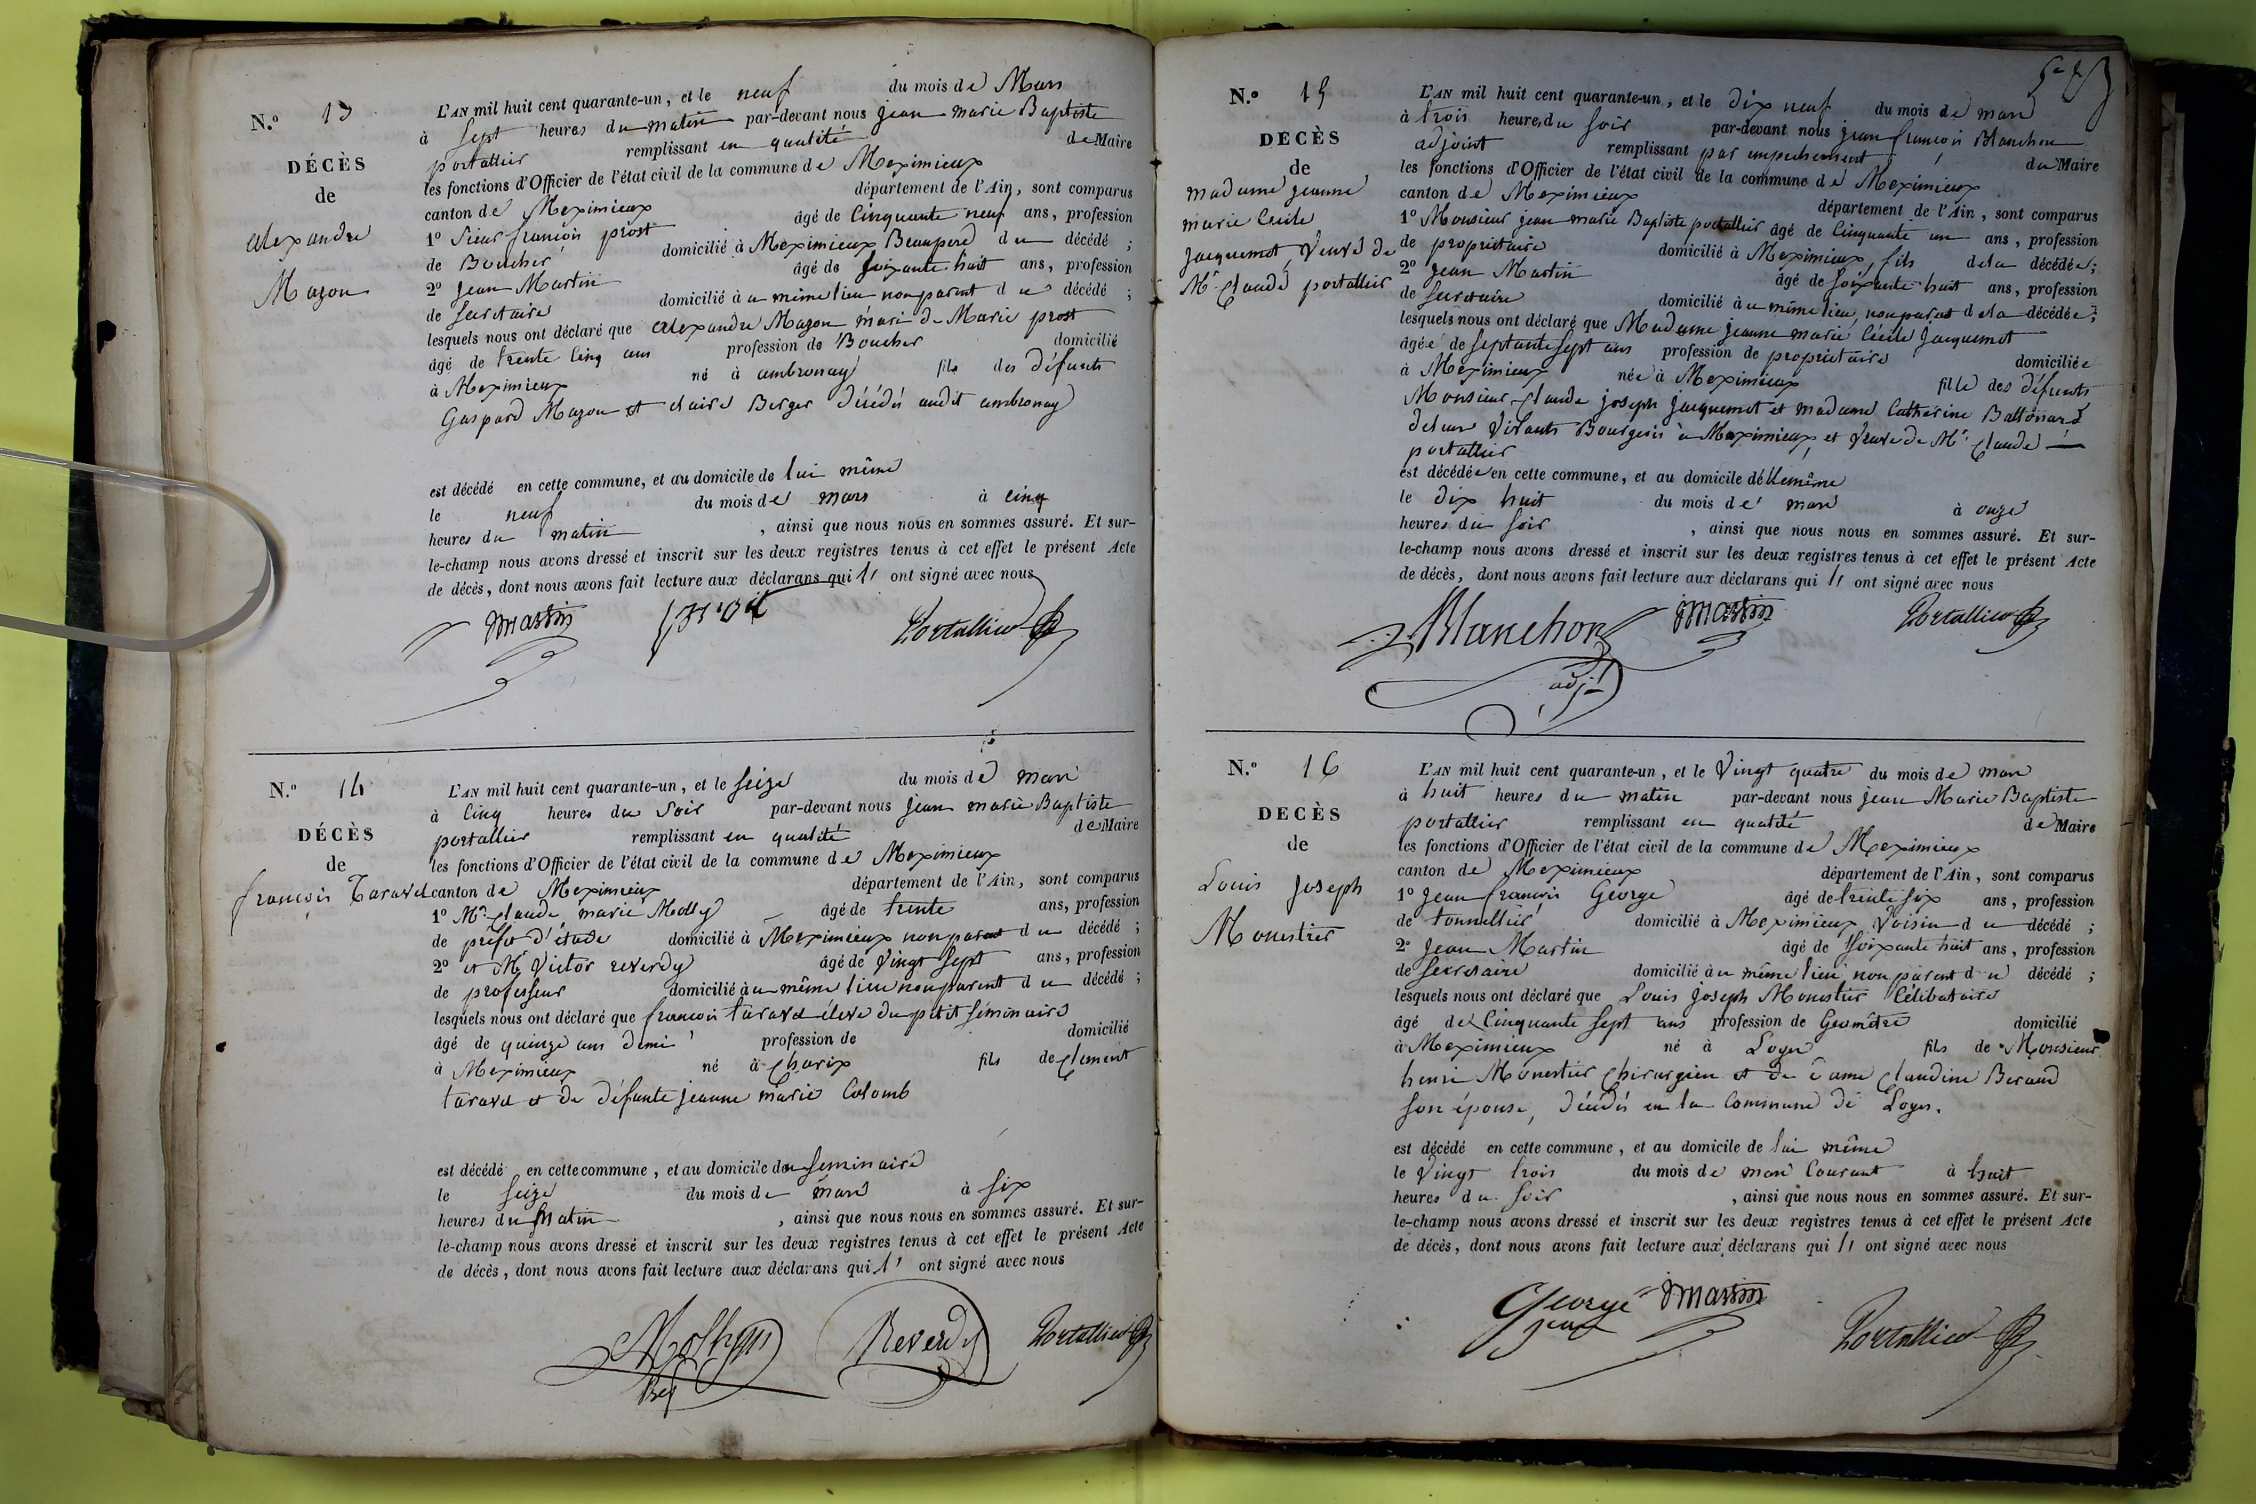 N.º 13
DÉCÈS
de
alexandre
Mazon
L'AN mil huit cent quarante-un, et le neuf du mois de Mars
à sept heures du matin par-devant nous jean marie Baptiste
portallier remplissant en qualité de Maire
les fonctions d'Officier de l'état civil de la commune de Meximieux
canton de Meximieux département de l'Ain, sont comparus
1º Sieur francois prost âgé de Cinquante neuf ans, profession
de Boucher domicilié à Meximieux Beaupere du décédé ;
2º jean Martin âgé de soixante huit ans, profession
de secretaire domicilié à u même lieu non parent du décédé ;
lesquels nous ont déclaré que alexandre Mazon mari de Marie prost
âgé de trente cinq ans profession de Boucher domicilié
à Meximieux né à ambronay fils des défunts
Gaspard Mazon et claire Berger décédés audit ambronay
est décédé en cette commune, et au domicile de lui même
le neuf du mois de mars à cinq
heures du matin , ainsi que nous nous en sommes assuré. Et sur-
le-champ nous avons dressé et inscrit sur les deux registres tenus à cet effet le présent Acte
de décès, dont nous avons fait lecture aux déclarans qui ont signé avec nous
jmartin prost Portallier
N.º 14
DÉCÈS
de
françois Taravel
L'AN mil huit cent quarante-un, et le seize du mois de mars
à Cinq heures du soir par-devant nous jean marie Baptiste
portallier remplissant en qualité de Maire
les fonctions d'Officier de l'état civil de la commune de Meximieux
canton de Meximieux département de l'Ain, sont comparus
1º Mr Claude marie âgé de trente ans, profession
de préfet d'étude domicilié à Meximieux non parent du décédé ;
2º et Mr Victor reverdy âgé de vingt sept ans, profession
de professeur domicilié à u même lieu non parent du décédé ;
lesquels nous ont déclaré que francois taravel élève du petit séminaire
âgé de quinze ans demi profession de domicilié
à Meximieux né à Charix fils de Clement
taravel et de défunte jeanne marie Colomb
est décédé en cette commune, et au domicile du seminaire
le seize du mois de mars à six
heures du matin , ainsi que nous nous en sommes assuré. Et sur-
le-champ nous avons dressé et inscrit sur les deux registres tenus à cet effet le présent Acte
de décès, dont nous avons fait lecture aux déclarans qui ont signé avec nous
Reverdy Portallier
N.º 15
DÉCÈS
de
madame jeanne
marie Cecile
jacquemot, Veuve de
Mr Claude portallier
L'AN mil huit cent quarante-un, et le dix neuf du mois de mars
à trois heures du soir par-devant nous jean françois Blanchon
adjoint remplissant par empechement du Maire
les fonctions d'Officier de l'état civil de la commune de Meximieux
canton de Meximieux département de l'Ain, sont comparus
1º Monsieur jean marie Baptiste portallier âgé de Cinquante un ans, profession
de propriétaire domicilié à Meximieux, fils de la décédée ;
2º jean Martin âgé de soixante huit ans, profession
de secretaire domicilié à u même lieu, non parent de la décédée ;
lesquels nous ont déclaré que Madame jeanne marie Cécile Jacquemot
âgée de septante sept ans profession de propriétaire domiciliée
à Meximieux née à Meximieux fille des défunts
Monsieur Claude joseph jacquemot et madame Catherine
de leur Vivants Bourgeois à Meximieux, et Veuve de Mr Claude
portallier
est décédée en cette commune, et au domicile d'elle même
le dix huit du mois de mars à onze
heures du soir , ainsi que nous nous en sommes assuré. Et sur-
le-champ nous avons dressé et inscrit sur les deux registres tenus à cet effet le présent Acte
de décès, dont nous avons fait lecture aux déclarans qui ont signé avec nous
Blanchon jmartin Portallier
adjt
N.º 16
DÉCÈS
de
Louis Joseph
Monestier
L'AN mil huit cent quarante-un, et le Vingt quatre du mois de mars
à huit heures du matin par-devant nous jean Marie Baptiste
portallier remplissant en qualité de Maire
les fonctions d'Officier de l'état civil de la commune de Meximieux
canton de Meximieux département de l'Ain, sont comparus
1º jean françois George âgé de trente six ans, profession
de tonnellier domicilié à Meximieux Voisin du décédé ;
2º Jean Martin âgé de soixante huit ans, profession
de secretaire domicilié à u même lieu non parent du décédé ;
lesquels nous ont déclaré que Louis joseph Monestier Célibataire
âgé de Cinquante sept ans profession de Geomêtre domicilié
à Meximieux né à Loyes fils de Monsieur
henri Monestier Chirurgien et de dame Claudine Beraud
son épouse, décédés en la commune de Loyes.
est décédé en cette commune, et au domicile de lui même
le vingt trois du mois de mars Courant à huit
heures du soir , ainsi que nous nous en sommes assuré. Et sur-
le-champ nous avons dressé et inscrit sur les deux registres tenus à cet effet le présent Acte
de décès, dont nous avons fait lecture aux déclarans qui ont signé avec nous
George jmartin
Portallier